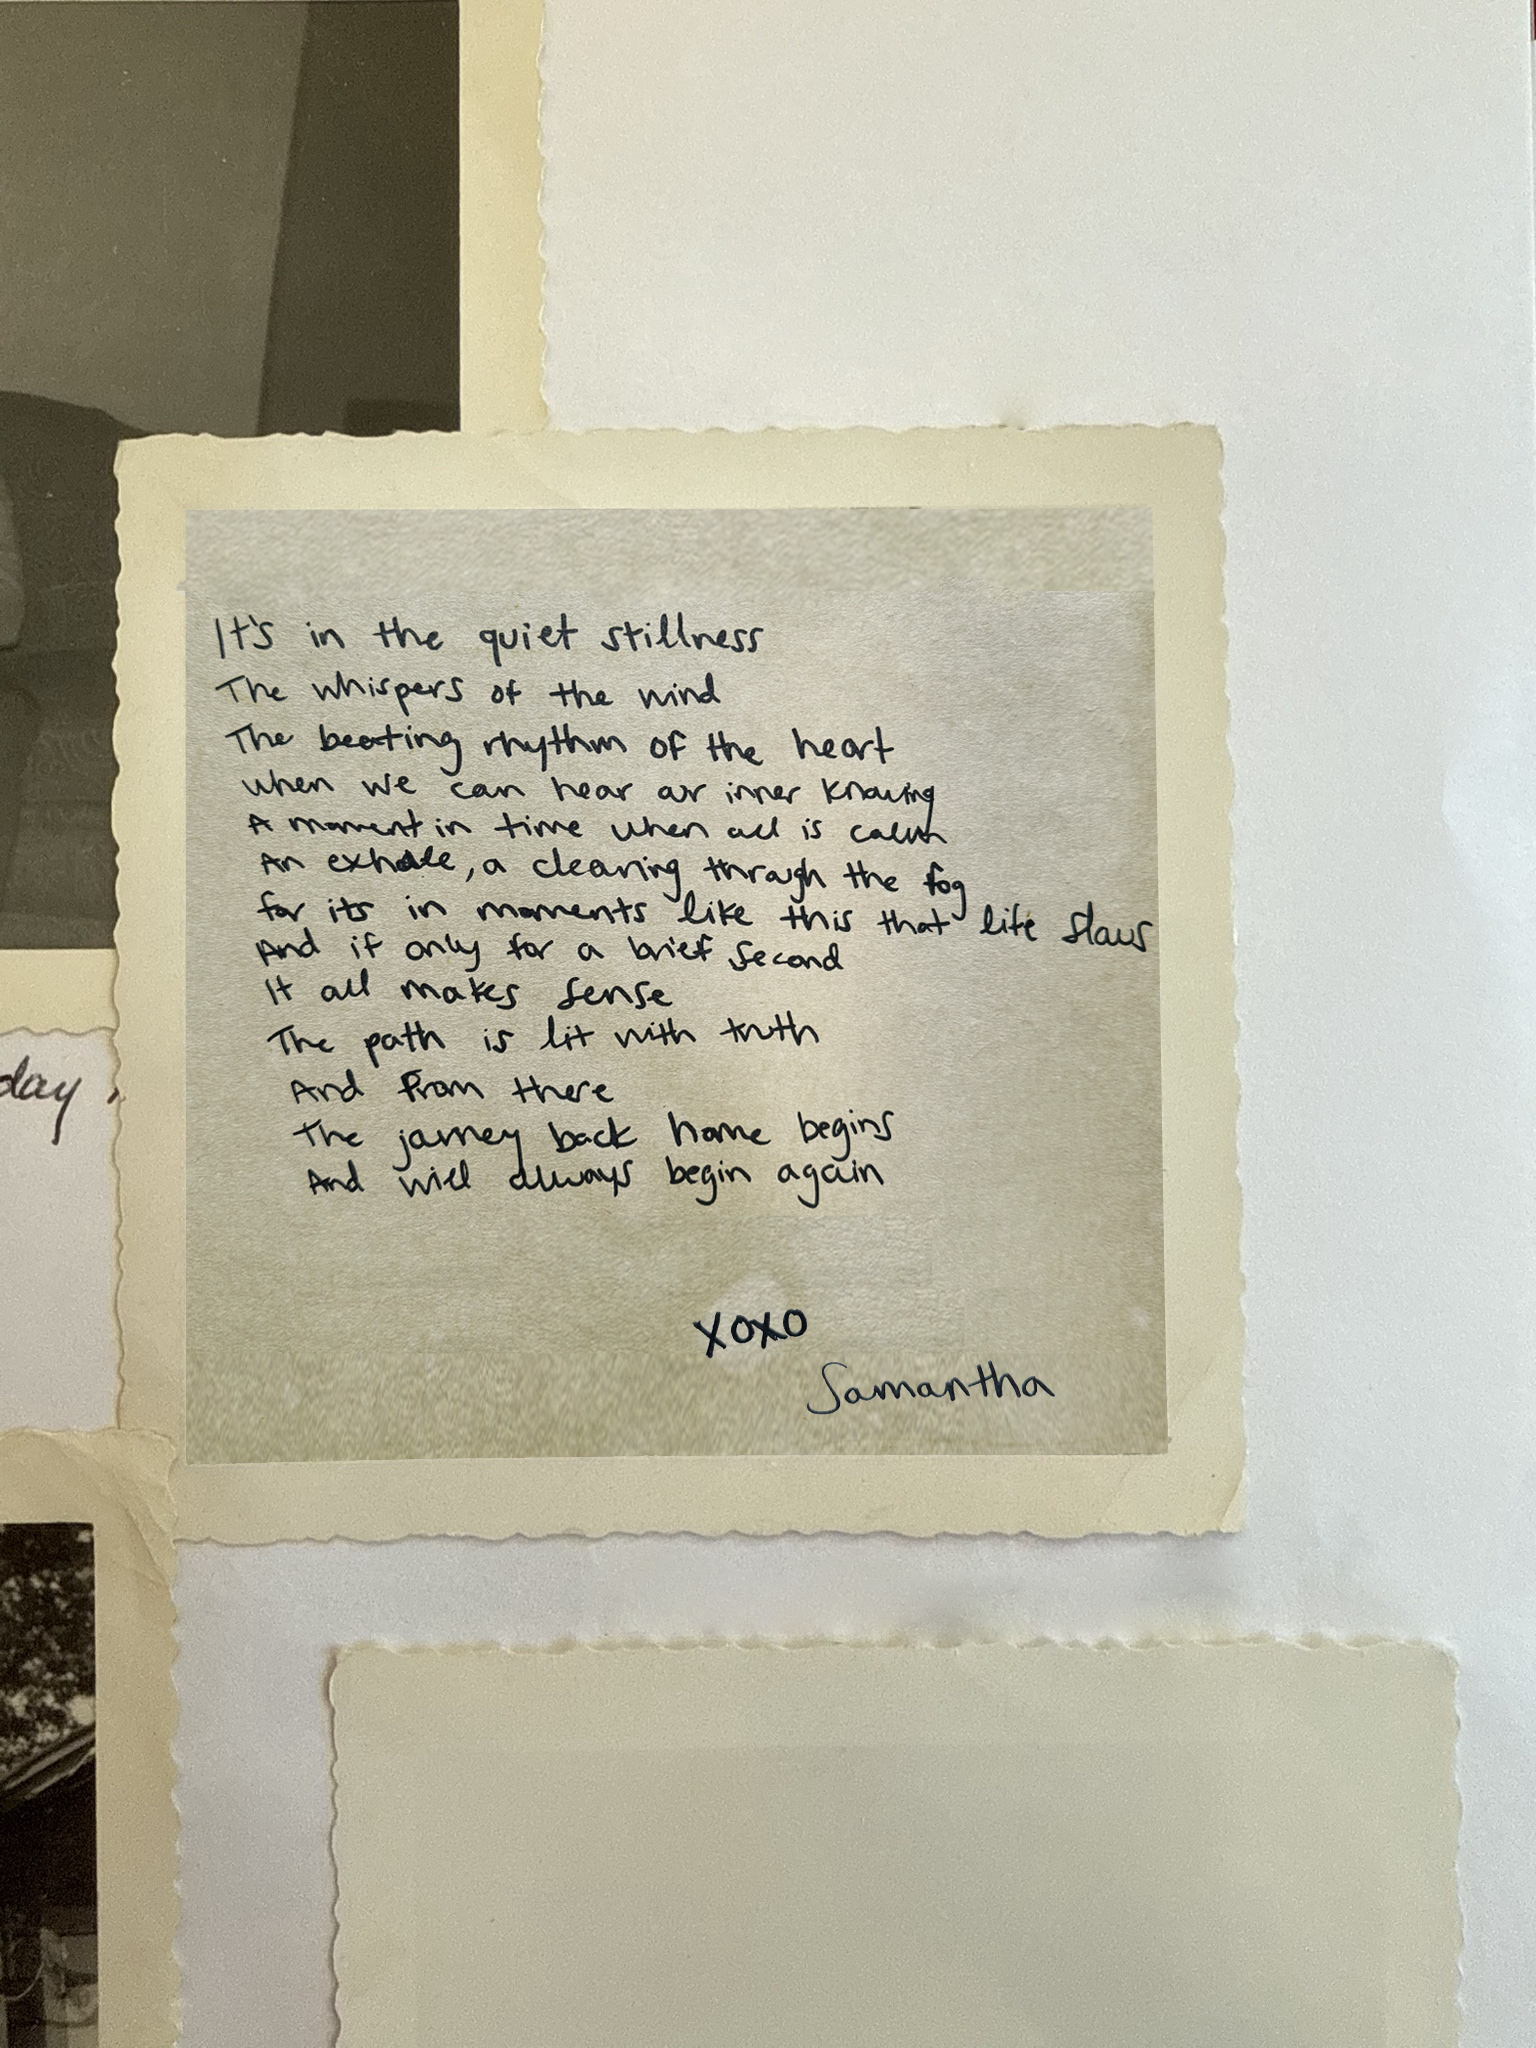 It's in the quiet stillness
The whispers of the wind
The beating rhythm of the heart
when we can hear our inner knowing
A moment in time when all is calm
An exhale, a clearing through the fog
for its in moments like this that life slows
And if only for a brief second
It all makes sense
The path is lit with truth
And from there
The journey back home begins
And will always begin again
xoxo
Samantha
day